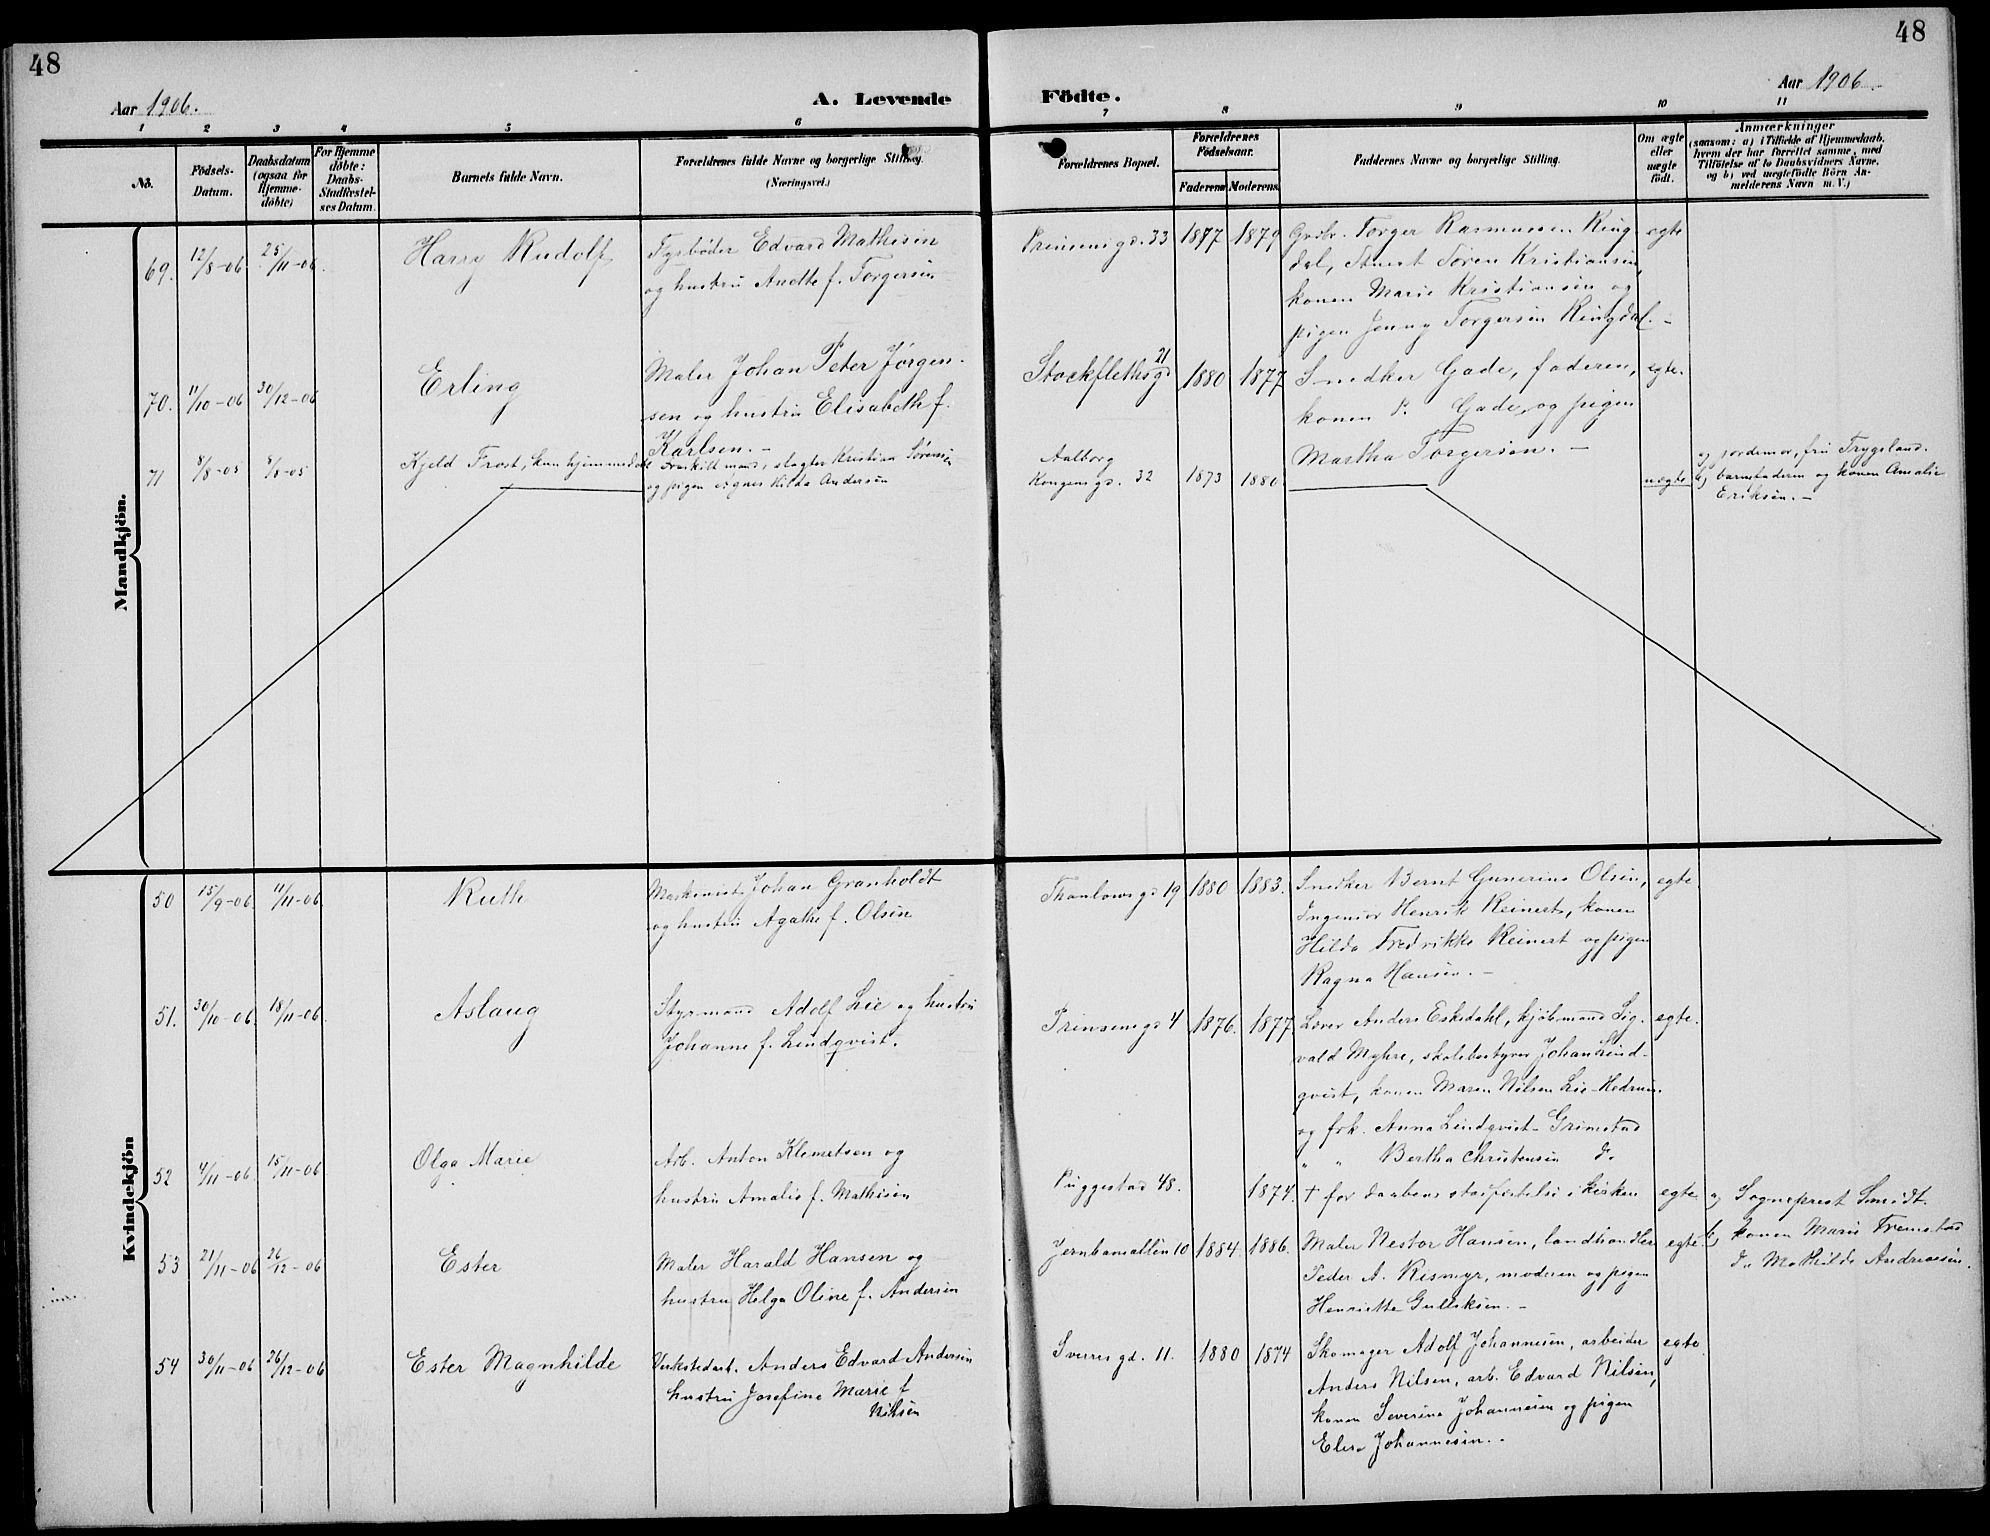 48
48
Aar 1906.
A. Levende Födte.
Aar 1906
1 2 3 4 5 6 7 8 9 10 11
No.
Födsels-Datum.
Daabsdatum (ogsaa for Hjemme-döbte)
For Hjemme döbte: Daabs-Stadfæstel-ses Datum.
Barnets fulde Navn.
Forældrenes fulde Navne og borgerlige Stilling.
(Næringsvei.)
Forældrenes Bopæl.
Forældrenes Födselsaar.
Faderens Moderens
Faddernes Navne og borgerlige Stilling.
Om ægte eller uægte födt.
Anmærkninger
(saasom: a) i Tilfælde af Hjemmedaab,
hvem der har forrettet samme, med
Tilföielse af to Daabsvidners Navne.
og b) ved uægtefödte Börn An-
melderens Navn m. V.)
Mandkjön.
69. 12/8-06 25/11-06. Harry Rudolf
Fyrbøder Edvard Mathisen
og hustru Andthe f. Torgersen
Prinsensgd. 33 1877 1879
Torger Rasmussen Ring
dal, Stuert Søren Kristiansen,
konen Marie Kristiansen og
pigen Jenny Torgersen Ringdal. -
egte
70. 11/10-06 30/12-06 Erling
Maler Johan Peter Jørgen-
sen og hustru Elisabeth f.
Karlsen. -
Stockflethsgd 21 1880 1877
Snedker Gade, faderen,
konen P. Gade, og pigen
Martha Torgersen. -
egte.
71 8/8-05 8/8-05 Kjeld Frost, kun hjemmedøbt
fraskilt mand, slagter Kristian Sørensen
og pigen Agnes Hilda Andersen
Aalborg
Kongensgd. 32 1873 1880
uegte
a, jordemor, fru Trygsland.
b, barnefaderen og konen Amalie
Eriksen. -
Kvindekjön
50 15/9-06 11/11-06 Ruth
Maskinist Johan Granholdt
og hustru Agathe f. Olsen
Thaulowsgd 19 1880 1883.
Snedker Bernt Gunerius Olsen,
Ingeniør Henrik Reinert, konen
Hilda Fredrikke Reinert og pigen
Ragna Hansen. -
egte
51. 30/10-06. 18/11-06. Aslaug
Styrmand Adolf Lie og hustru
Johanne f. Lindqvist.
Prinsensgd 4 1876. 1877
Lærer Anders Eskedahl, kjøbmand Sig-
vald Myhre, skolebestyrer Johan Lind-
qvist, konen Maren Nilsen Lie-Hedrum.
og frk. Anna Lindqvist-Grimstad
" " Bertha Christensen do
egte.
52 4/11-06. 15/11-06 Olga Marie
Arb. Anton Klemetsen og
hustru Amalie f. Mathisen
Puggestad 48. 1874.
† før daabens stadfestelse i kirken
egte
a, Sogneprest Smidt.
b, konen Marie Fremstad
do Mathilde Andreasen.
53 21/11-06 26/12-06 Ester
Maler Harald Hansen og
hustru Helga Oline f. Andersen
Jernbanalléen 10 1884. 1886.
Maler Nestor Hansen, landhandler
Peder A. Rismyr, moderen og pigen
Henriette Gulliksen. -
egte
54 30/11-06 26/12-06 Ester Magnhilde
Verkstedarb. Anders Edvard Andersen
hustru Josefine Marie f
Nilsen
Sverresgd. 11. 1880 1874
Skomager Adolf Johannesen, arbeider
Anders Nilsen, arb. Edvard Nilsen,
konen Severine Johannesen og pigen
Elise Johannesen. -
egte